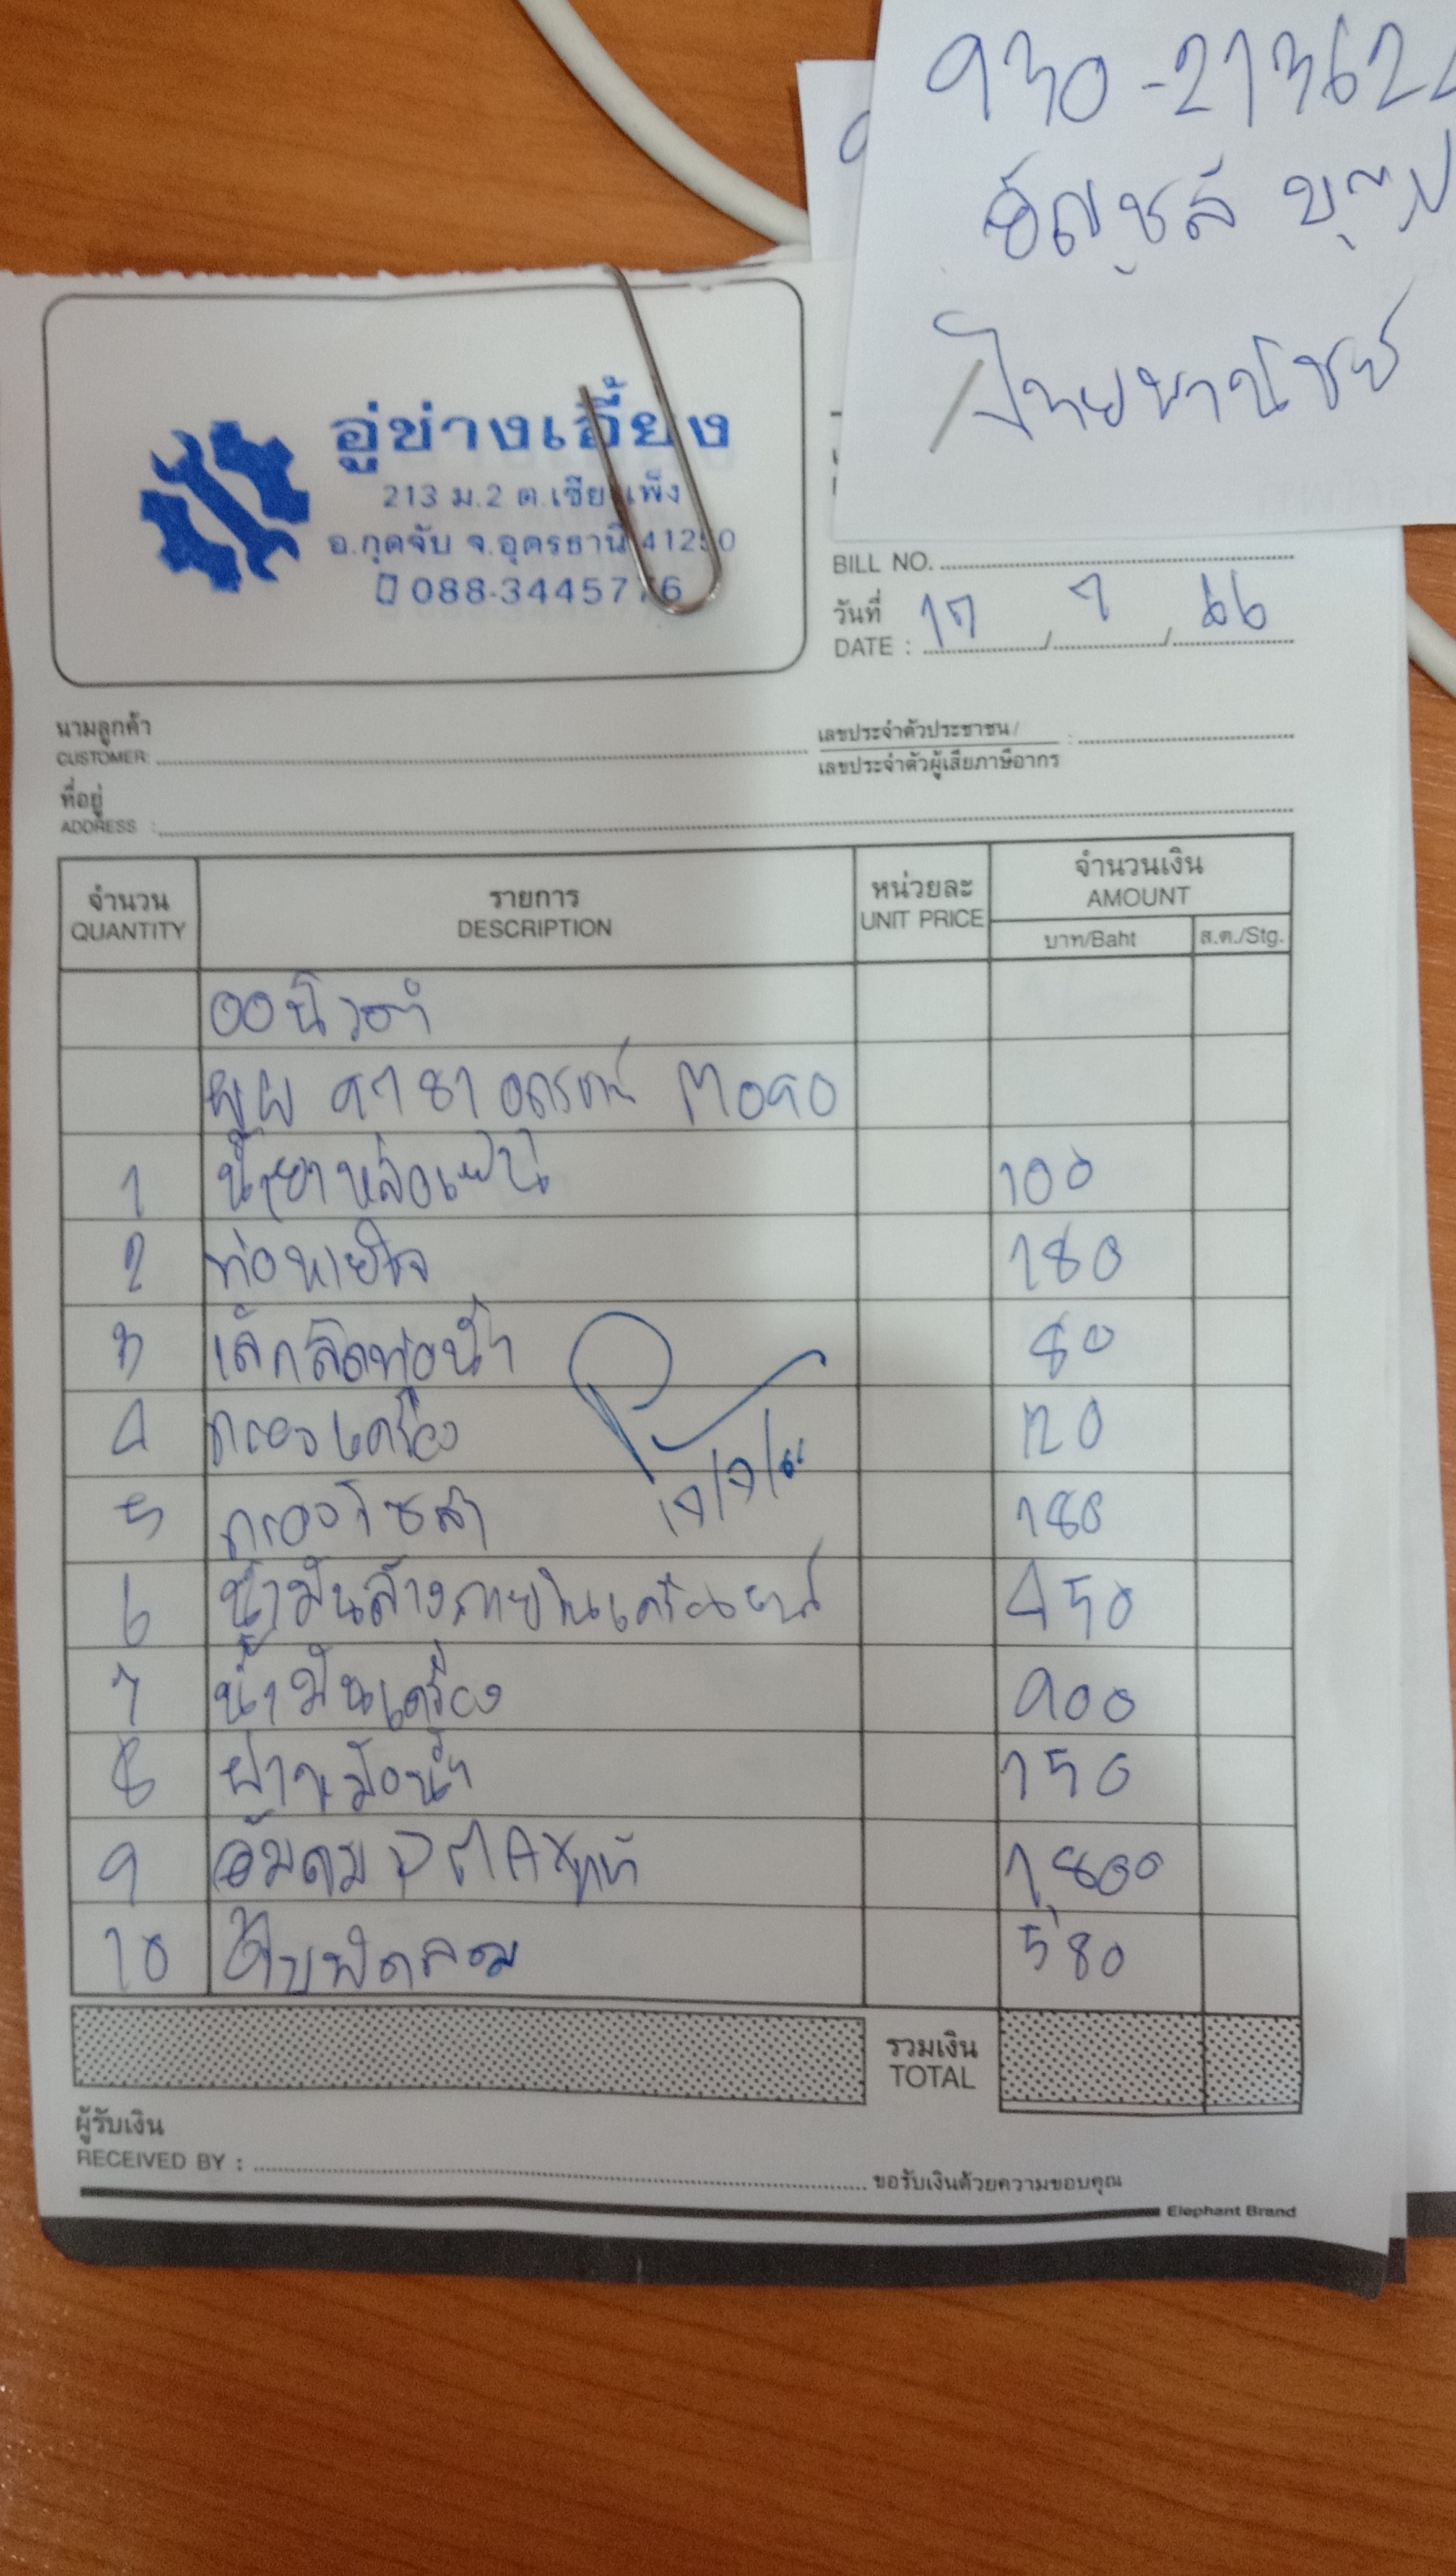 930-213622
ไทยพาณิชย์
อู่ช่างเอี้ยง
213 ม.2 ต.เชียงเพ็ง
อ.กุดจับ จ.อุดรธานี 41250
088-3445776
BILL NO.
วันที่
DATE : 17 / 7 / 66
นามลูกค้า
CUSTOMER:
เลขประจำตัวประชาชน /
เลขประจำตัวผู้เสียภาษีอากร :
ที่อยู่
ADDRESS :
จำนวน QUANTITY รายการ DESCRIPTION หน่วยละ UNIT PRICE จำนวนเงิน AMOUNT
บาท/Baht ส.ต./Stg.
ผผ 9781 อุดรธานี
1 น้ำยาหล่อเย็น 100
2 ท่อหายใจ 180
3 เล็กลัดท่อน้ำ 80
4 กรองเครื่อง 120
5 กรองโซล่า 180
6 น้ำมันล้างภายในเครื่องยนต์ 450
7 น้ำมันเครื่อง 900
8 ฝาหม้อน้ำ 150
17/7/66
9 1,800
10 ใบพัดลม 580
รวมเงิน
TOTAL
ผู้รับเงิน
RECEIVED BY : ขอรับเงินด้วยความขอบคุณ
Elephant Brand